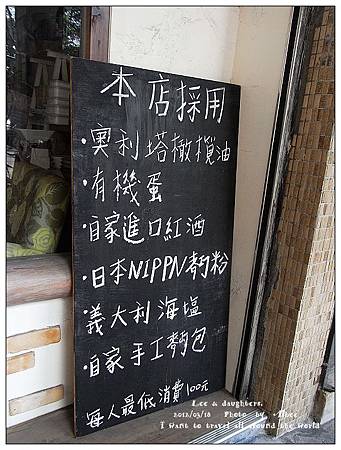 本店採用
·奧利塔橄欖油
·有機蛋
·自家進口紅酒
·日本NIPPN麵粉
·義大利海塩
·自家手工麵包
每人最低消費100元
Lee & daughters.
2012/03/18 Photo by
I Want to travel all around the world